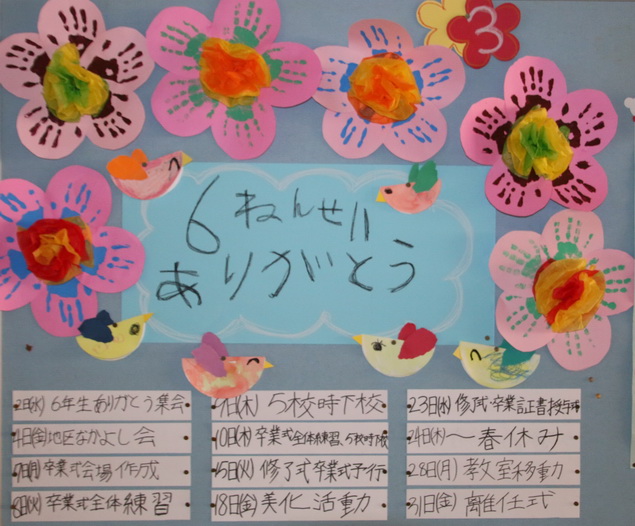 3
6ねんせい
ありがとう
2日(水) 6年生ありがとう集会
4日(金)地区なかよし会
7日(月)卒業式会場作成
8日(火)卒業式全体練習
9日(木) 5校時下校
10日(木)卒業式全体練習、5校時
15日(火)修了式卒業式予行
18日(金)美化活動
23日(水)修了式・卒業証書授与式
24日(木)～春休み
28日(月)教室移動
31日(金)離任式